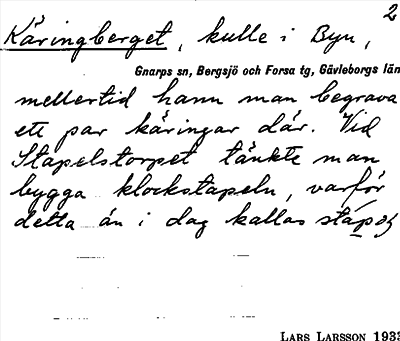 2
Käringberget, kulle i Byn,
Gnarps sn, Bergsjö och Forsa tg, Gävleborgs län
mellertid hann man begrava
ett par käringar där. Vid
Stapelstorpet tänkte man
bygga klockstapeln, varför
detta än i dag kallas
LARS LARSSON 1933